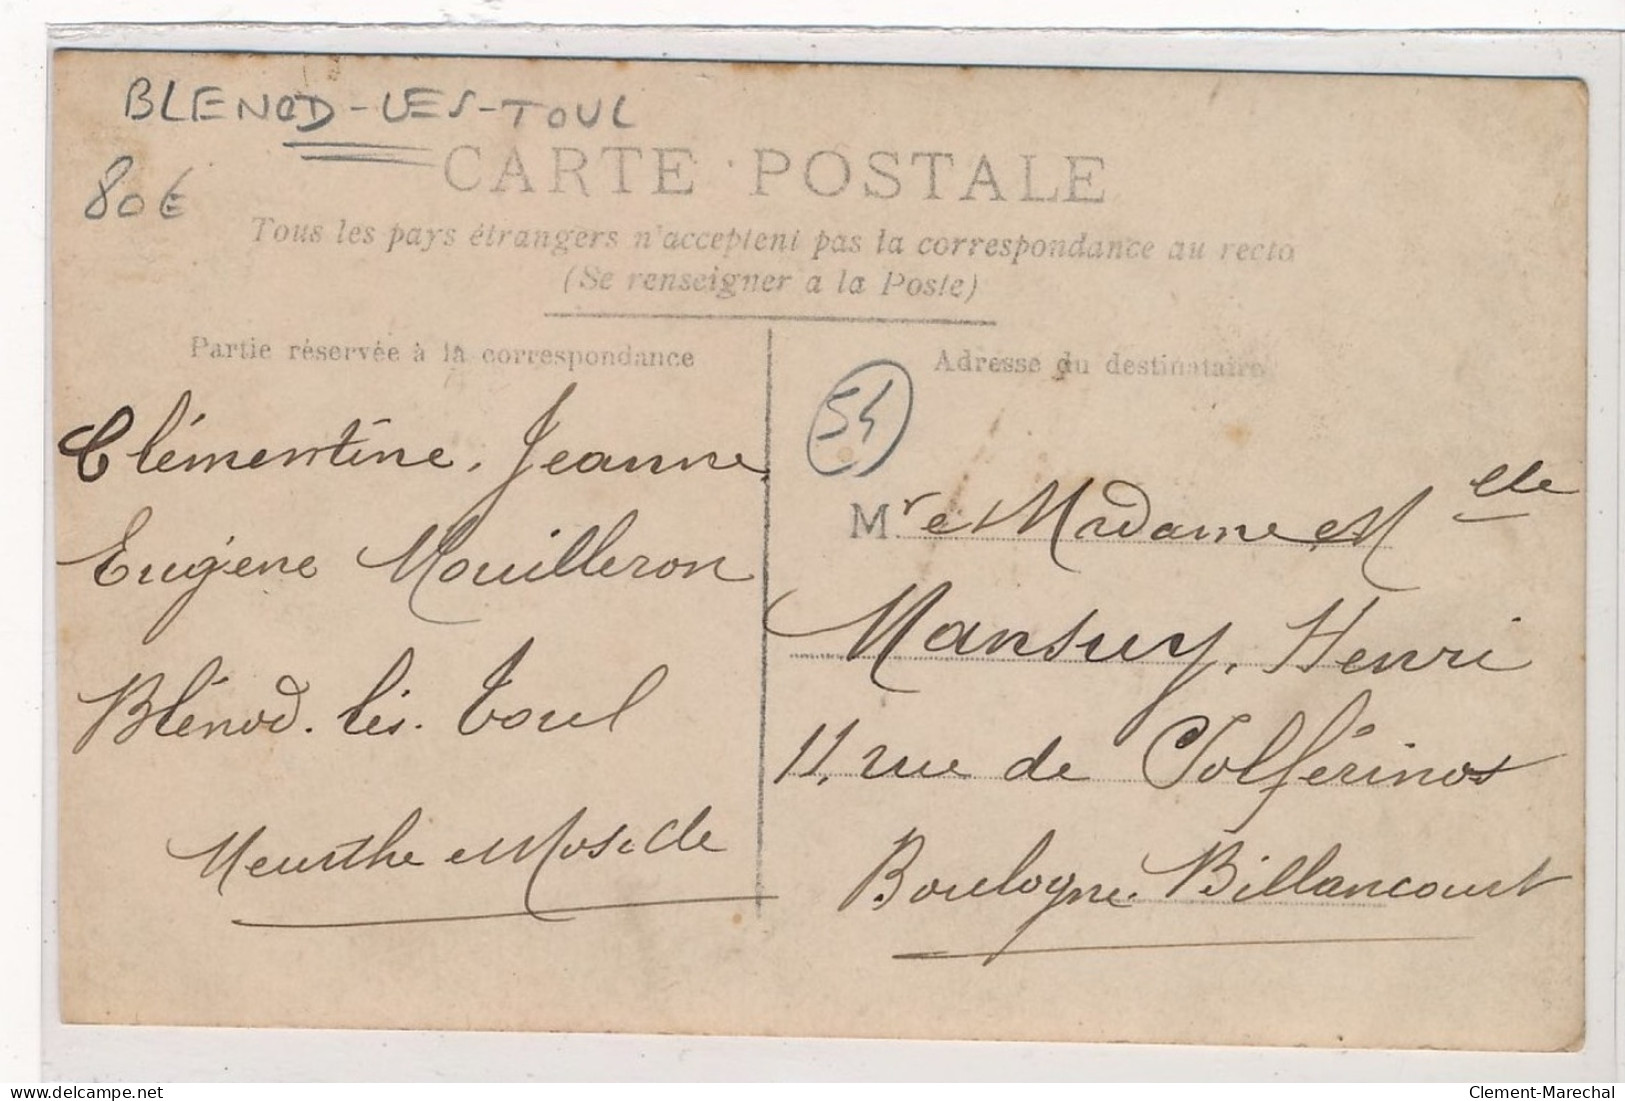 BLENOD-LES-TOUL
80€
CARTE POSTALE
Tous les pays étrangers n'acceptent pas la correspondance au recto
(Se renseigner a la Poste)
Partie réservée à la correspondance
Clémentine, Jeanne,
Eugène Mouilleron
Blénod-lès-Toul
Meurthe et Moselle
Adresse du destinataire
54
Mr et Madame, Melle
Mansuy, Henri
11, rue de Solférino
Boulogne-Billancourt
delcampe.net
Clement-Marechal